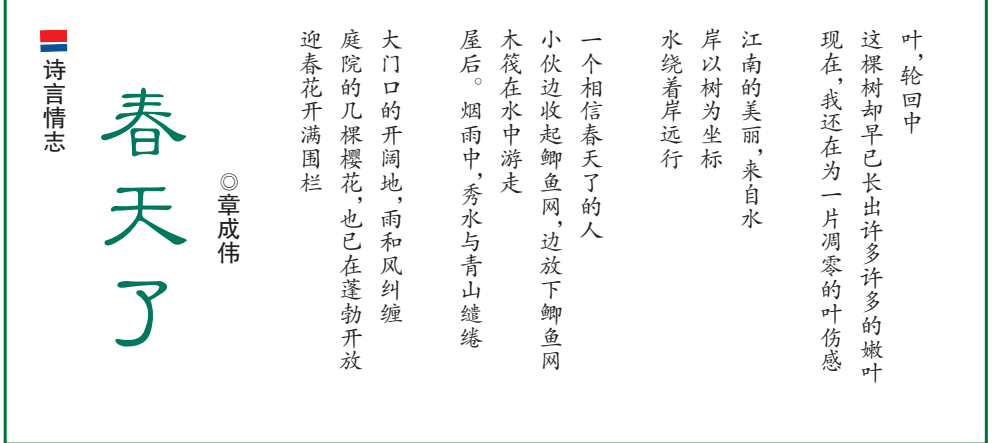 诗言情志
春天了
◎章成伟
迎春花开满围栏
庭院的几棵樱花,也已在蓬勃开放
大门口的开阔地,雨和风纠缠
屋后。烟雨中,秀水与青山缱绻
木筏在水中游走
小伙边收起鲫鱼网,边放下鲫鱼网
一个相信春天了的人
水绕着岸远行
岸以树为坐标
江南的美丽,来自水
现在,我还在为一片凋零的叶伤感
这棵树却早已长出许多许多的嫩叶
叶,轮回中